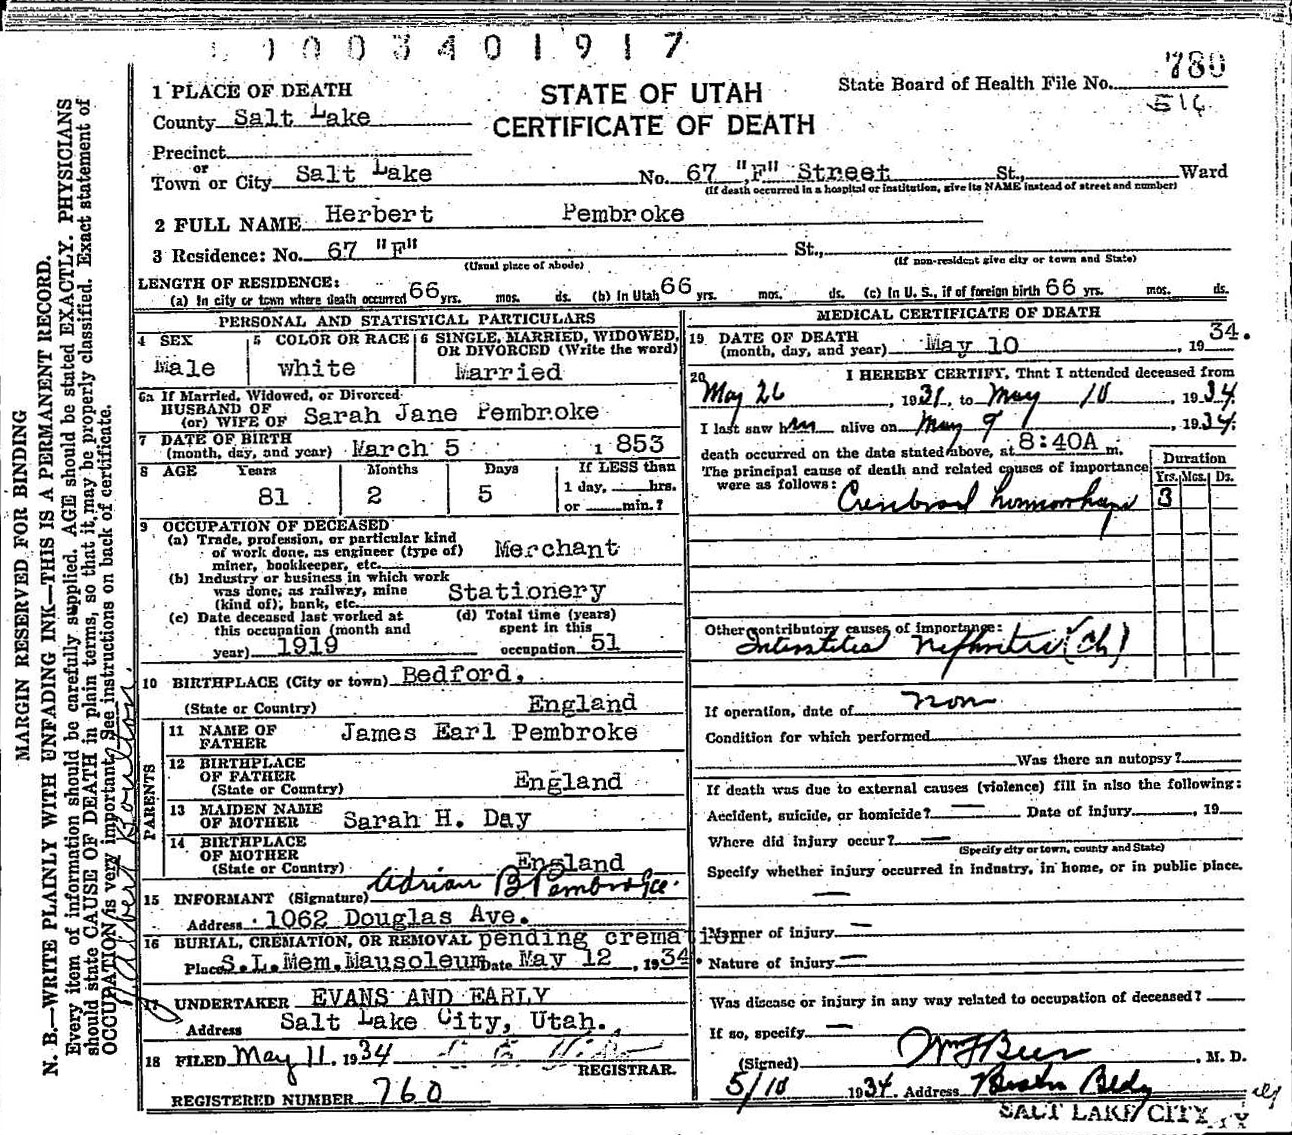 0 0 3 4 0 1 9 1 7
780
STATE OF UTAH
CERTIFICATE OF DEATH
State Board of Health File No.
516
1 PLACE OF DEATH
County Salt Lake
Precinct
or
Town or City Salt Lake No. 67 "F" Street St., Ward
(If death occurred in a hospital or institution, give its NAME instead of street and number)
2 FULL NAME Herbert Pembroke
3 Residence: No. 67 "F" St.,
(Usual place of abode) (If non-resident give city or town and State)
LENGTH OF RESIDENCE:
(a) In city or town where death occurred 66 yrs. mos. ds. (b) In Utah 66 yrs. mos. ds. (c) In U. S., if of foreign birth 66 yrs. mos. ds.
PERSONAL AND STATISTICAL PARTICULARS
4 SEX
Male
5 COLOR OR RACE
white
6 SINGLE, MARRIED, WIDOWED, OR DIVORCED (Write the word)
Married
6a If Married, Widowed, or Divorced
HUSBAND OF
(or) WIFE OF Sarah Jane Pembroke
7 DATE OF BIRTH
(month, day, and year) March 5 1853
8 AGE Years Months Days If LESS than
81 2 5 1 day, hrs.
or min.?
9 OCCUPATION OF DECEASED
(a) Trade, profession, or particular kind
of work done, as engineer (type of)
miner, bookkeeper, etc. Merchant
(b) Industry or business in which work
was done, as railway, mine
(kind of), bank, etc. Stationery
(c) Date deceased last worked at
this occupation (month and
year) 1919
(d) Total time (years)
spent in this
occupation 51
10 BIRTHPLACE (City or town) Bedford,
(State or Country) England
PARENTS
11 NAME OF
FATHER James Earl Pembroke
12 BIRTHPLACE
OF FATHER
(State or Country) England
13 MAIDEN NAME
OF MOTHER Sarah H. Day
14 BIRTHPLACE
OF MOTHER
(State or Country) England
15 INFORMANT (Signature) Adrian B Pembroke
Address 1062 Douglas Ave.
16 BURIAL, CREMATION, OR REMOVAL pending cremation
Place S.L.Mem.Mausoleum Date May 12, 1934.
17 UNDERTAKER EVANS AND EARLY
Address Salt Lake City, Utah.
18 FILED May 11, 1934
REGISTRAR.
REGISTERED NUMBER 760
MEDICAL CERTIFICATE OF DEATH
19 DATE OF DEATH
(month, day, and year) May 10, 1934.
20 I HEREBY CERTIFY, That I attended deceased from
May 26, 1931, to May 10, 1934.
I last saw him alive on May 9, 1934.
death occurred on the date stated above, at 8:40A m.
The principal cause of death and related causes of importance
were as follows:
Duration
Yrs. Mos. Ds.
Cerebral hemorrhage 3
Other contributory causes of importance:
Interstitial Nephritis (Ch)
If operation, date of non
Condition for which performed
Was there an autopsy?
If death was due to external causes (violence) fill in also the following:
Accident, suicide, or homicide? — Date of injury , 19
Where did injury occur? —
(Specify city or town, county and State)
Specify whether injury occurred in industry, in home, or in public place.
—
Manner of injury —
Nature of injury —
Was disease or injury in any way related to occupation of deceased?
If so, specify —
(Signed) Wm F Beer, M. D.
5/10 1934. Address Bldg
SALT LAKE CITY
MARGIN RESERVED FOR BINDING
N. B.—WRITE PLAINLY WITH UNFADING INK—THIS IS A PERMANENT RECORD.
Every item of information should be carefully supplied. AGE should be stated EXACTLY. PHYSICIANS
should state CAUSE OF DEATH in plain terms, so that it may be properly classified. Exact statement of
OCCUPATION is very important. See instructions on back of certificate.